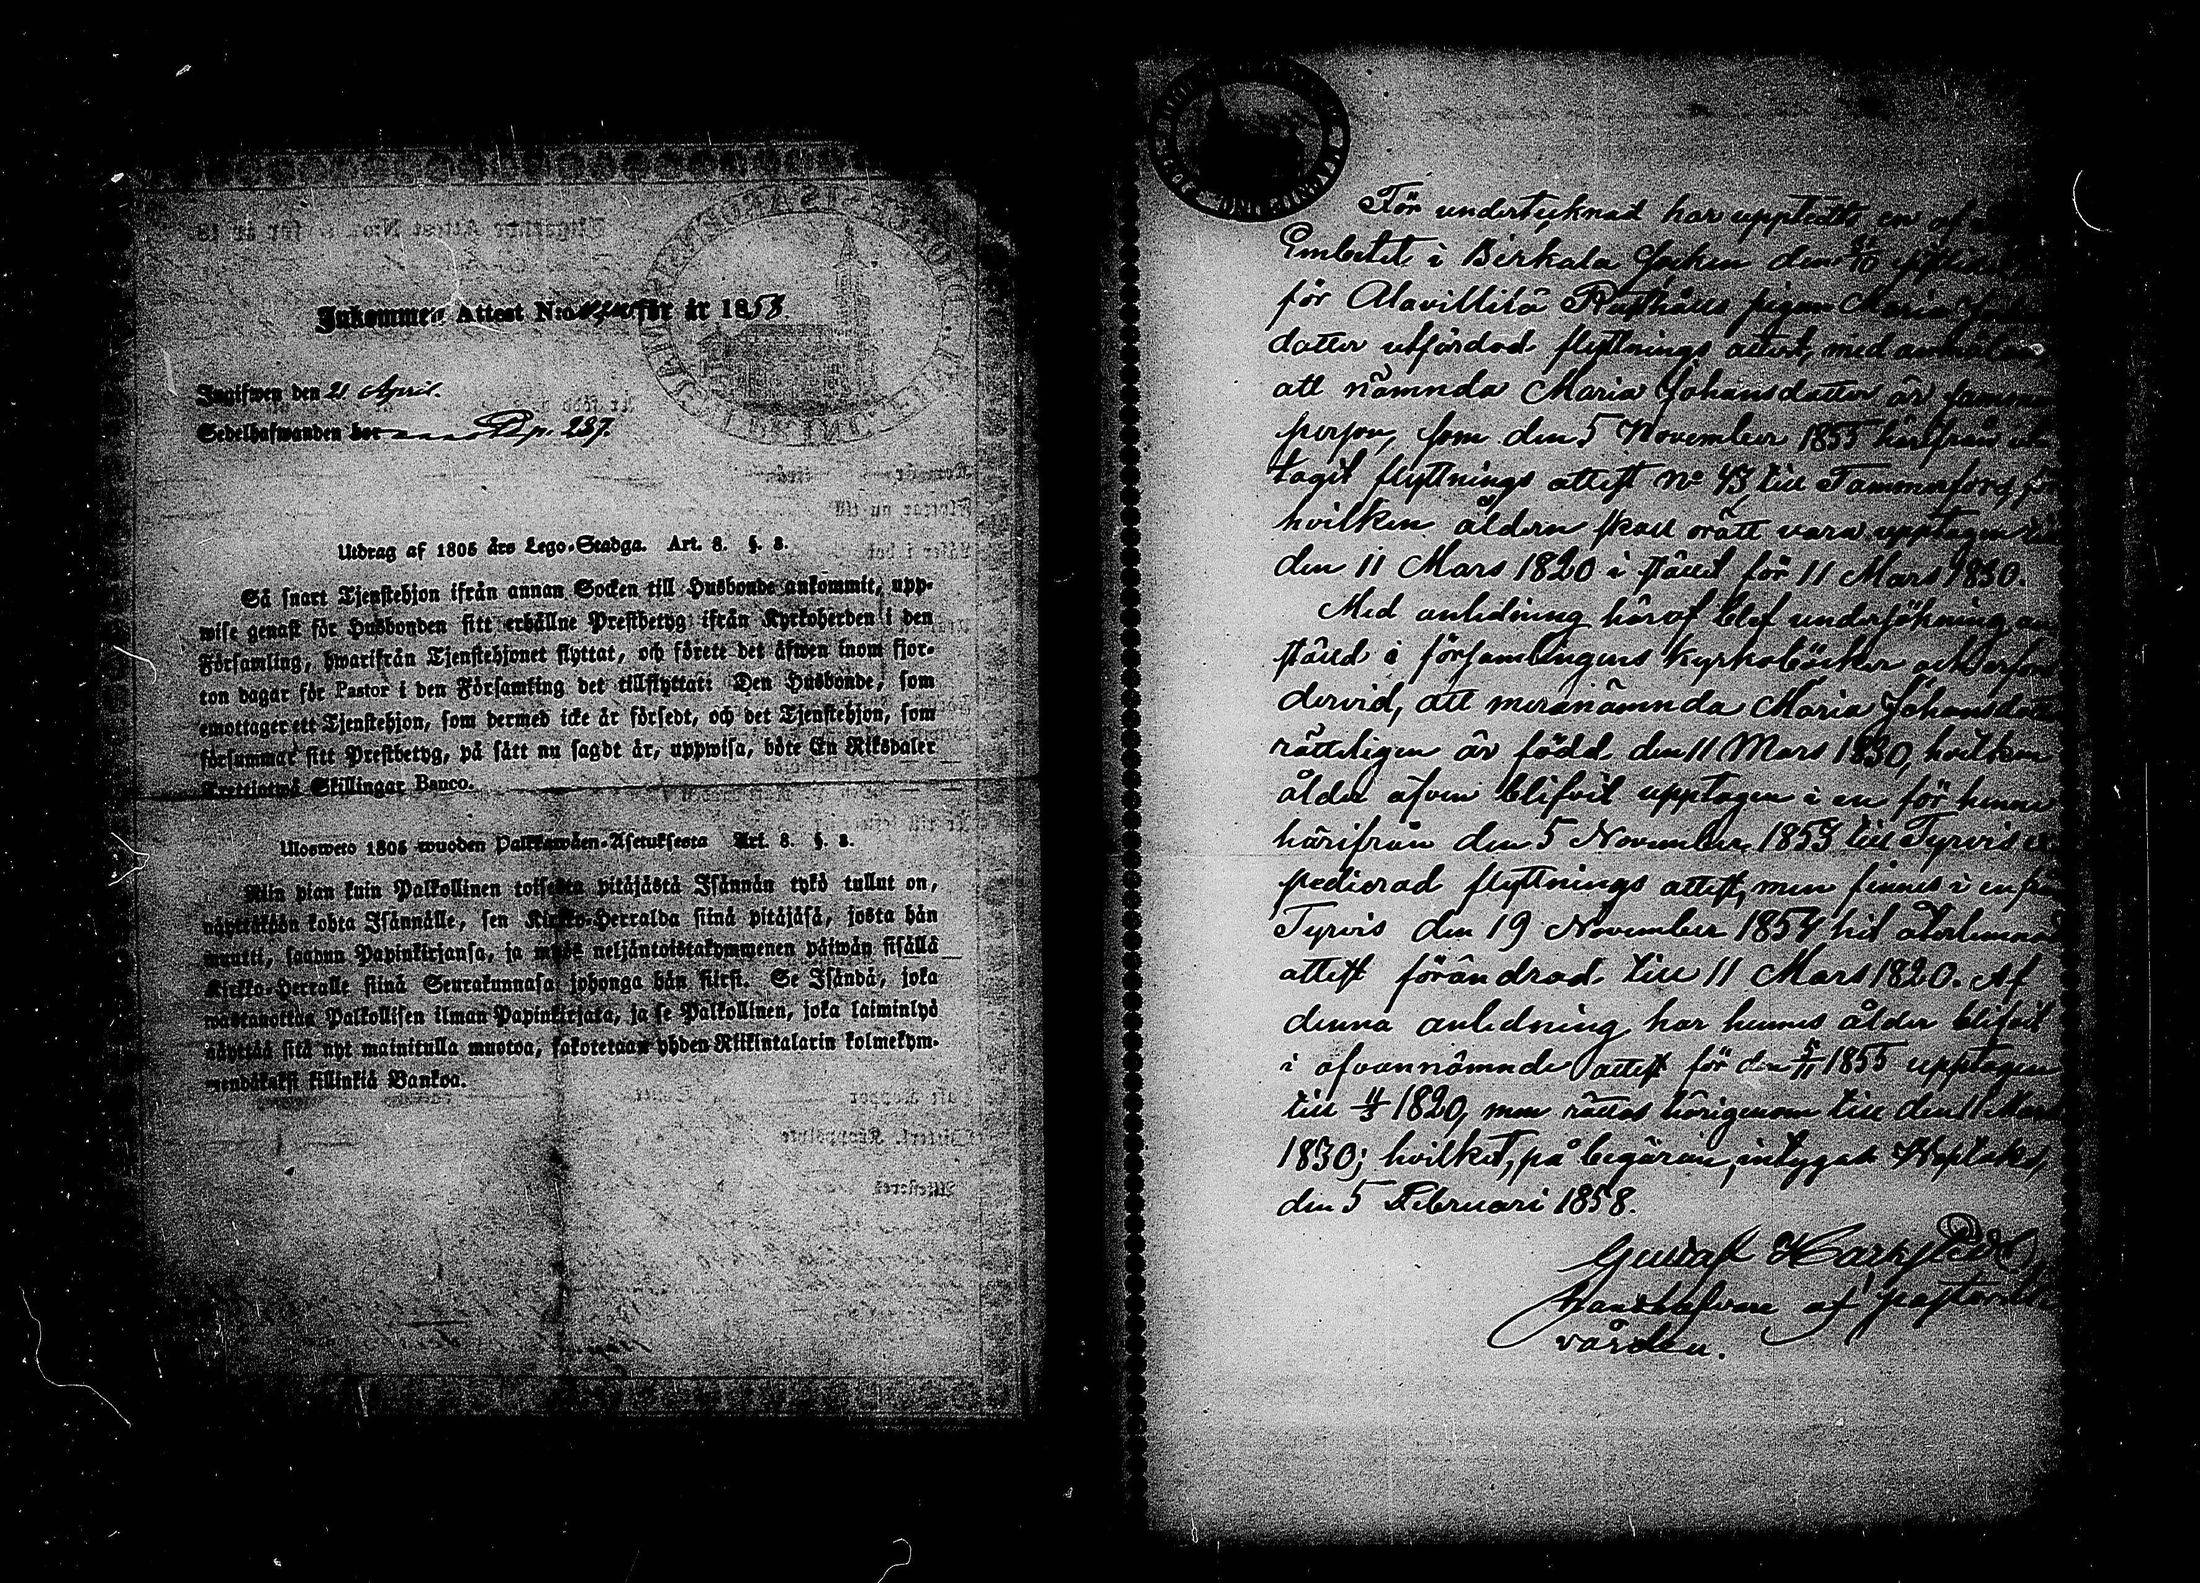 Inkommen Attest N:o för år 1858.
Ingifwen den 21 April.
Sedelhafwanden bor p. 237.
Utdrag af 1805 års Lego-Stadga. Art. 8. §. 8.
Så snart Tjenstehjon ifrån annan Socken till Husbonde ankommit, upp-
wise genast för Husbonden sitt erhållne Prestbetyg ifrån Kyrkoherden i den
Församling, hwarifrån Tjenstehjonet flyttat, och förete det äfwen inom fjor-
ton dagar för Pastor i den Församling det tillflyttat: Den Husbonde, som
emottager ett Tjenstehjon, som dermed icke är försedt, och det Tjenstehjon, som
försummar sitt Prestbetyg, på sätt nu sagdt är, uppwisa, böte En Riksdaler
Trettiotwå Skillingar Banco.
Ulosweto 1805 wuoden Palkkawäen-Asetuksesta Art. 8. §. 8.
Niin pian kuin Palkollinen toisesta pitäjästä Isännän tykö tullut on,
näyttäkään kohta Isännälle, sen Kirkko-Herralda siinä pitäjäsä, josta hän
muutti, saadun Papinkirjansa, ja myös neljäntoistakymmenen päiwän sisällä
Kirkko-Herralle siinä Seurakunnasa johonga hän siirsi. Se Isändä, joka
wastanottaa Palkollisen ilman Papinkirjata, ja se Palkollinen, joka laiminlyö
näyttää sitä nyt mainitulla muotoa, sakotetaan yhden Riikintalarin kolmekym-
mendäkaksi killinkiä Bankoa.
För undertecknad har uppteett en af
Embetet i Birkala Socken den
för Alavillilä Rusthålls pigan Maria
dotter utfärdad flyttnings attest, med anmälan,
att nämnda Maria Johansdotter är samma
person, som den 5 November 1855 härifrån
tagit flyttnings attest No 43 till Tammerfors,
hvilken åldern skall orätt vara upptagen till
den 11 Mars 1820 i stället för 11 Mars 1830.
Med anledning häraf blef undersökning an
ställd i församlingens kyrkoböcker och erfors
dervid, att meranämnda Maria Johansdotter
rätteligen är född den 11 Mars 1830, hvilken
ålder äfven blifvit upptagen i en för henne
härifrån den 5 November 1853 till Tyrvis ex
pedierad flyttnings attest, men finnes i en från
Tyrvis den 19 November 1854 hit återlemnad
attest förändrad till 11 Mars 1820. Af
denna anledning har hennes ålder blifvit
i ofvannämnde attest för den 5/11 1855 upptagen
till 11/3 1820, men rättas härigenom till den 11 Mars
1830; hvilket, på begäran, intygas.
den 5 Februari 1858.
Gustaf
handhafvare af pastors
vården.